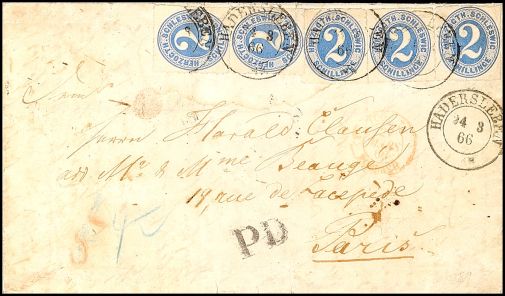 HERZOGTH. SCHLESWIG 2 SCHILLINGE
HERZOGTH. SCHLESWIG 2 SCHILLINGE
HERZOGTH. SCHLESWIG 2 SCHILLINGE
HERZOGTH. SCHLESWIG 2 SCHILLINGE
HERZOGTH. SCHLESWIG 2 SCHILLINGE
HADERSLEBEN
3
66
HADERSLEBEN
24 3
66
Herrn Harald Clausen
Mr & Mme Beaugé
19, rue de Lacepède
Paris
PD